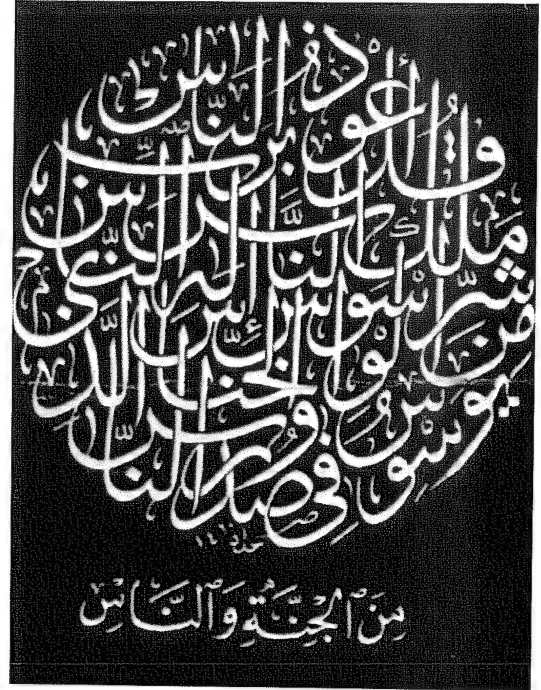 قُلْ أَعُوذُ بِرَبِّ النَّاسِ
مَلِكِ النَّاسِ إِلَهِ النَّاسِ
مِن شَرِّ الْوَسْوَاسِ الْخَنَّاسِ الَّذِي
يُوَسْوِسُ فِي صُدُورِ النَّاسِ
مِنَ ٱلْجِنَّةِ وَٱلنَّاسِ